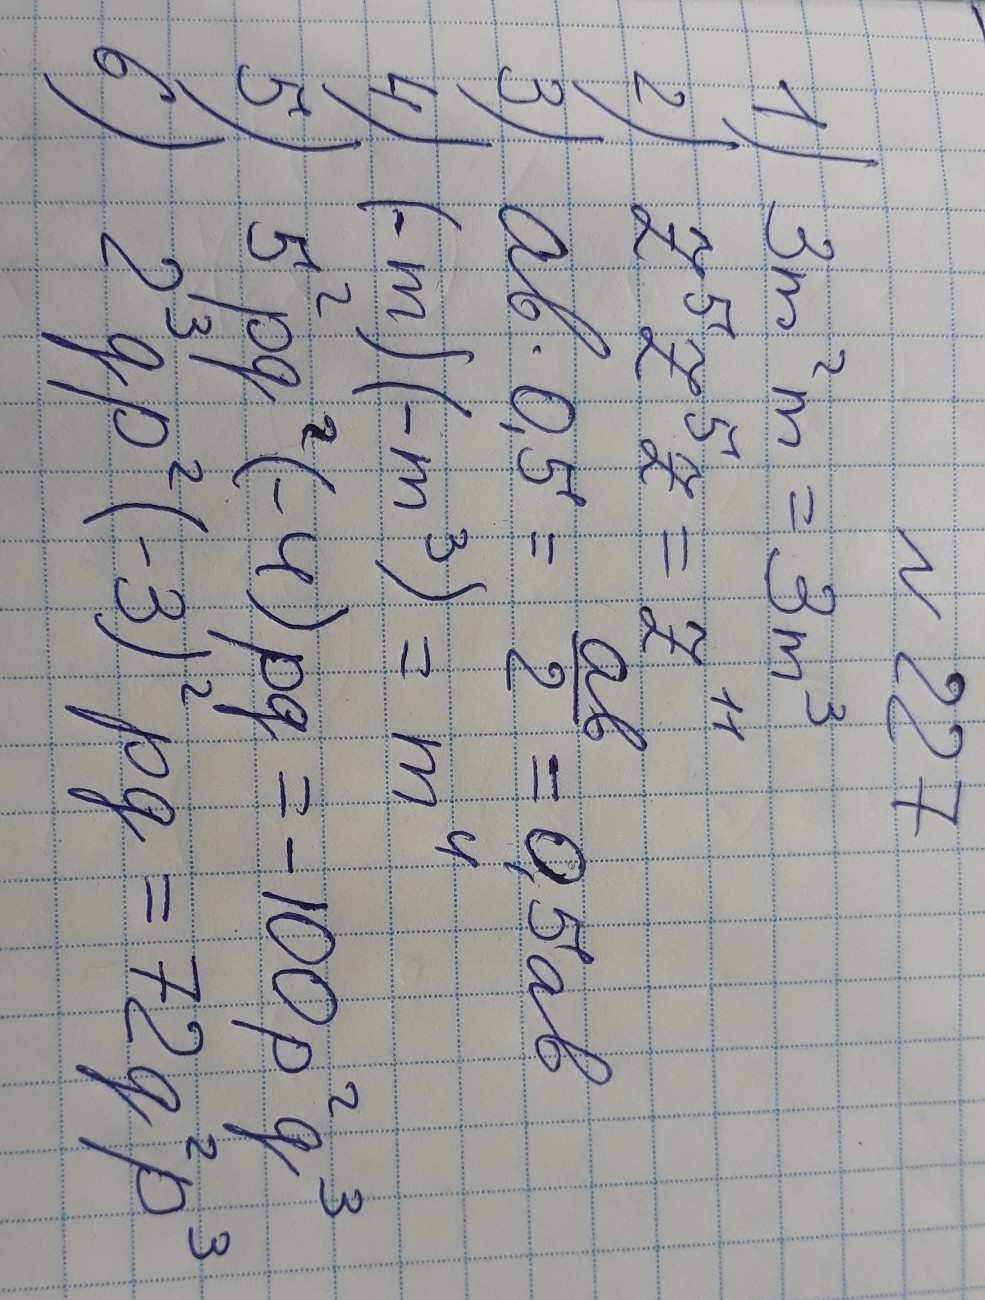 N 227
1) 3m²m = 3m³
2) z⁵z⁵z = z¹¹
3) ab · 0,5 = ab/2 = 0,5ab
4) (-m)(-m³) = m⁴
5) 5²pq²(-4)pq = -100p²q³
6) 2³qp²(-3)²pq = 72q²p³